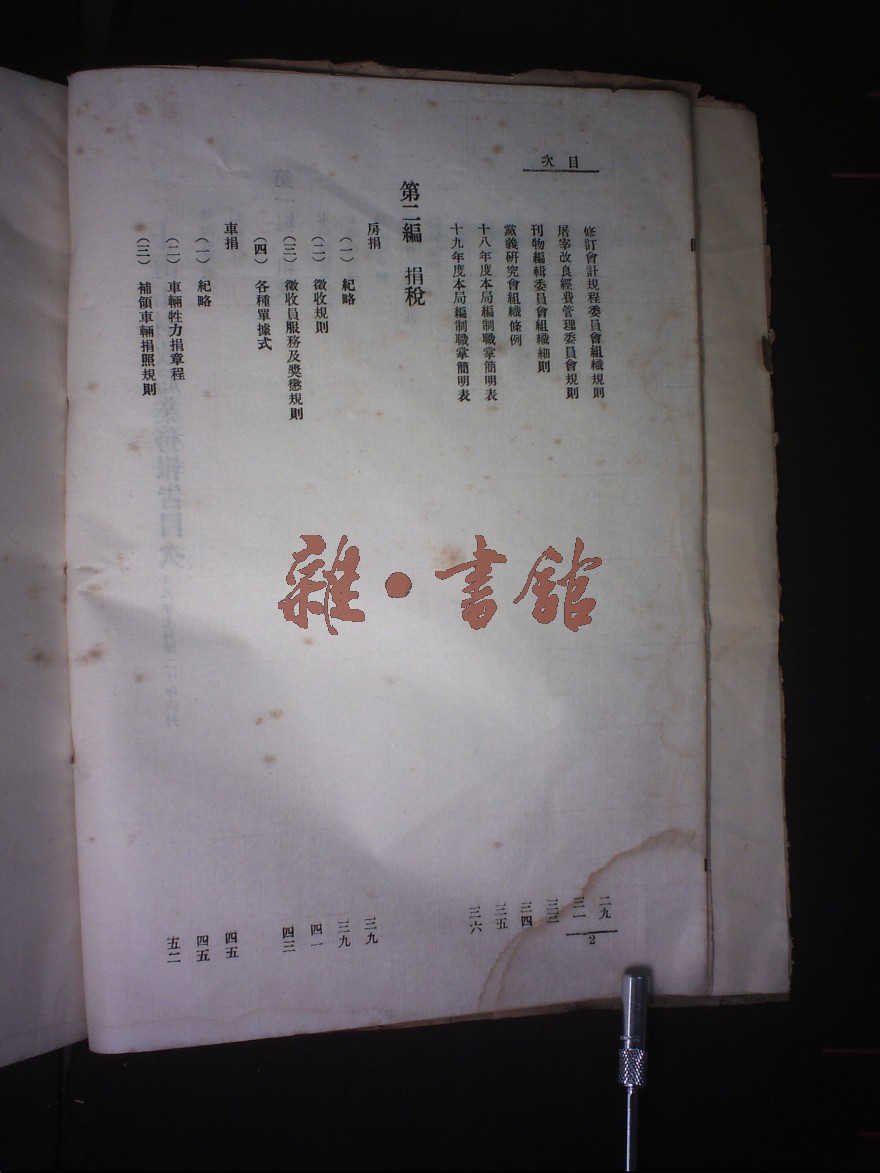 目次
修訂會計規程委員會組織規則 二九
屠宰改良經費管理委員會規則 三一
刊物編輯委員會組織細則 三三
黨義研究會組織條例 三四
十八年度本局編制職掌簡明表 三五
十九年度本局編制職掌簡明表 三六
第二編 捐稅
房捐 三九
(一) 紀略 三九
(二) 徵收規則 四一
(三) 徵收員服務及獎懲規則 四三
(四) 各種單據式
車捐 四五
(一) 紀略 四五
(二) 車輛牲力捐章程 五二
(三) 補領車輛捐照規則
2
雜·書館